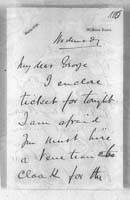 Wednesday
My dear George
I enclose
ticket for tonight
I am afraid
you must hire
a Venetian
cloak for the